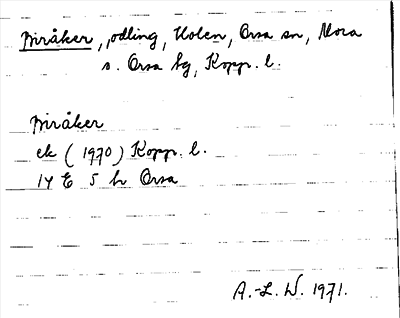 Miråker, odling, Holen, Orsa sn, Mora
s. Orsa tg, Kopp. l.
Miråker
ek (1970) Kopp. l.
14 E 5 h Orsa
A.-L. W. 1971.